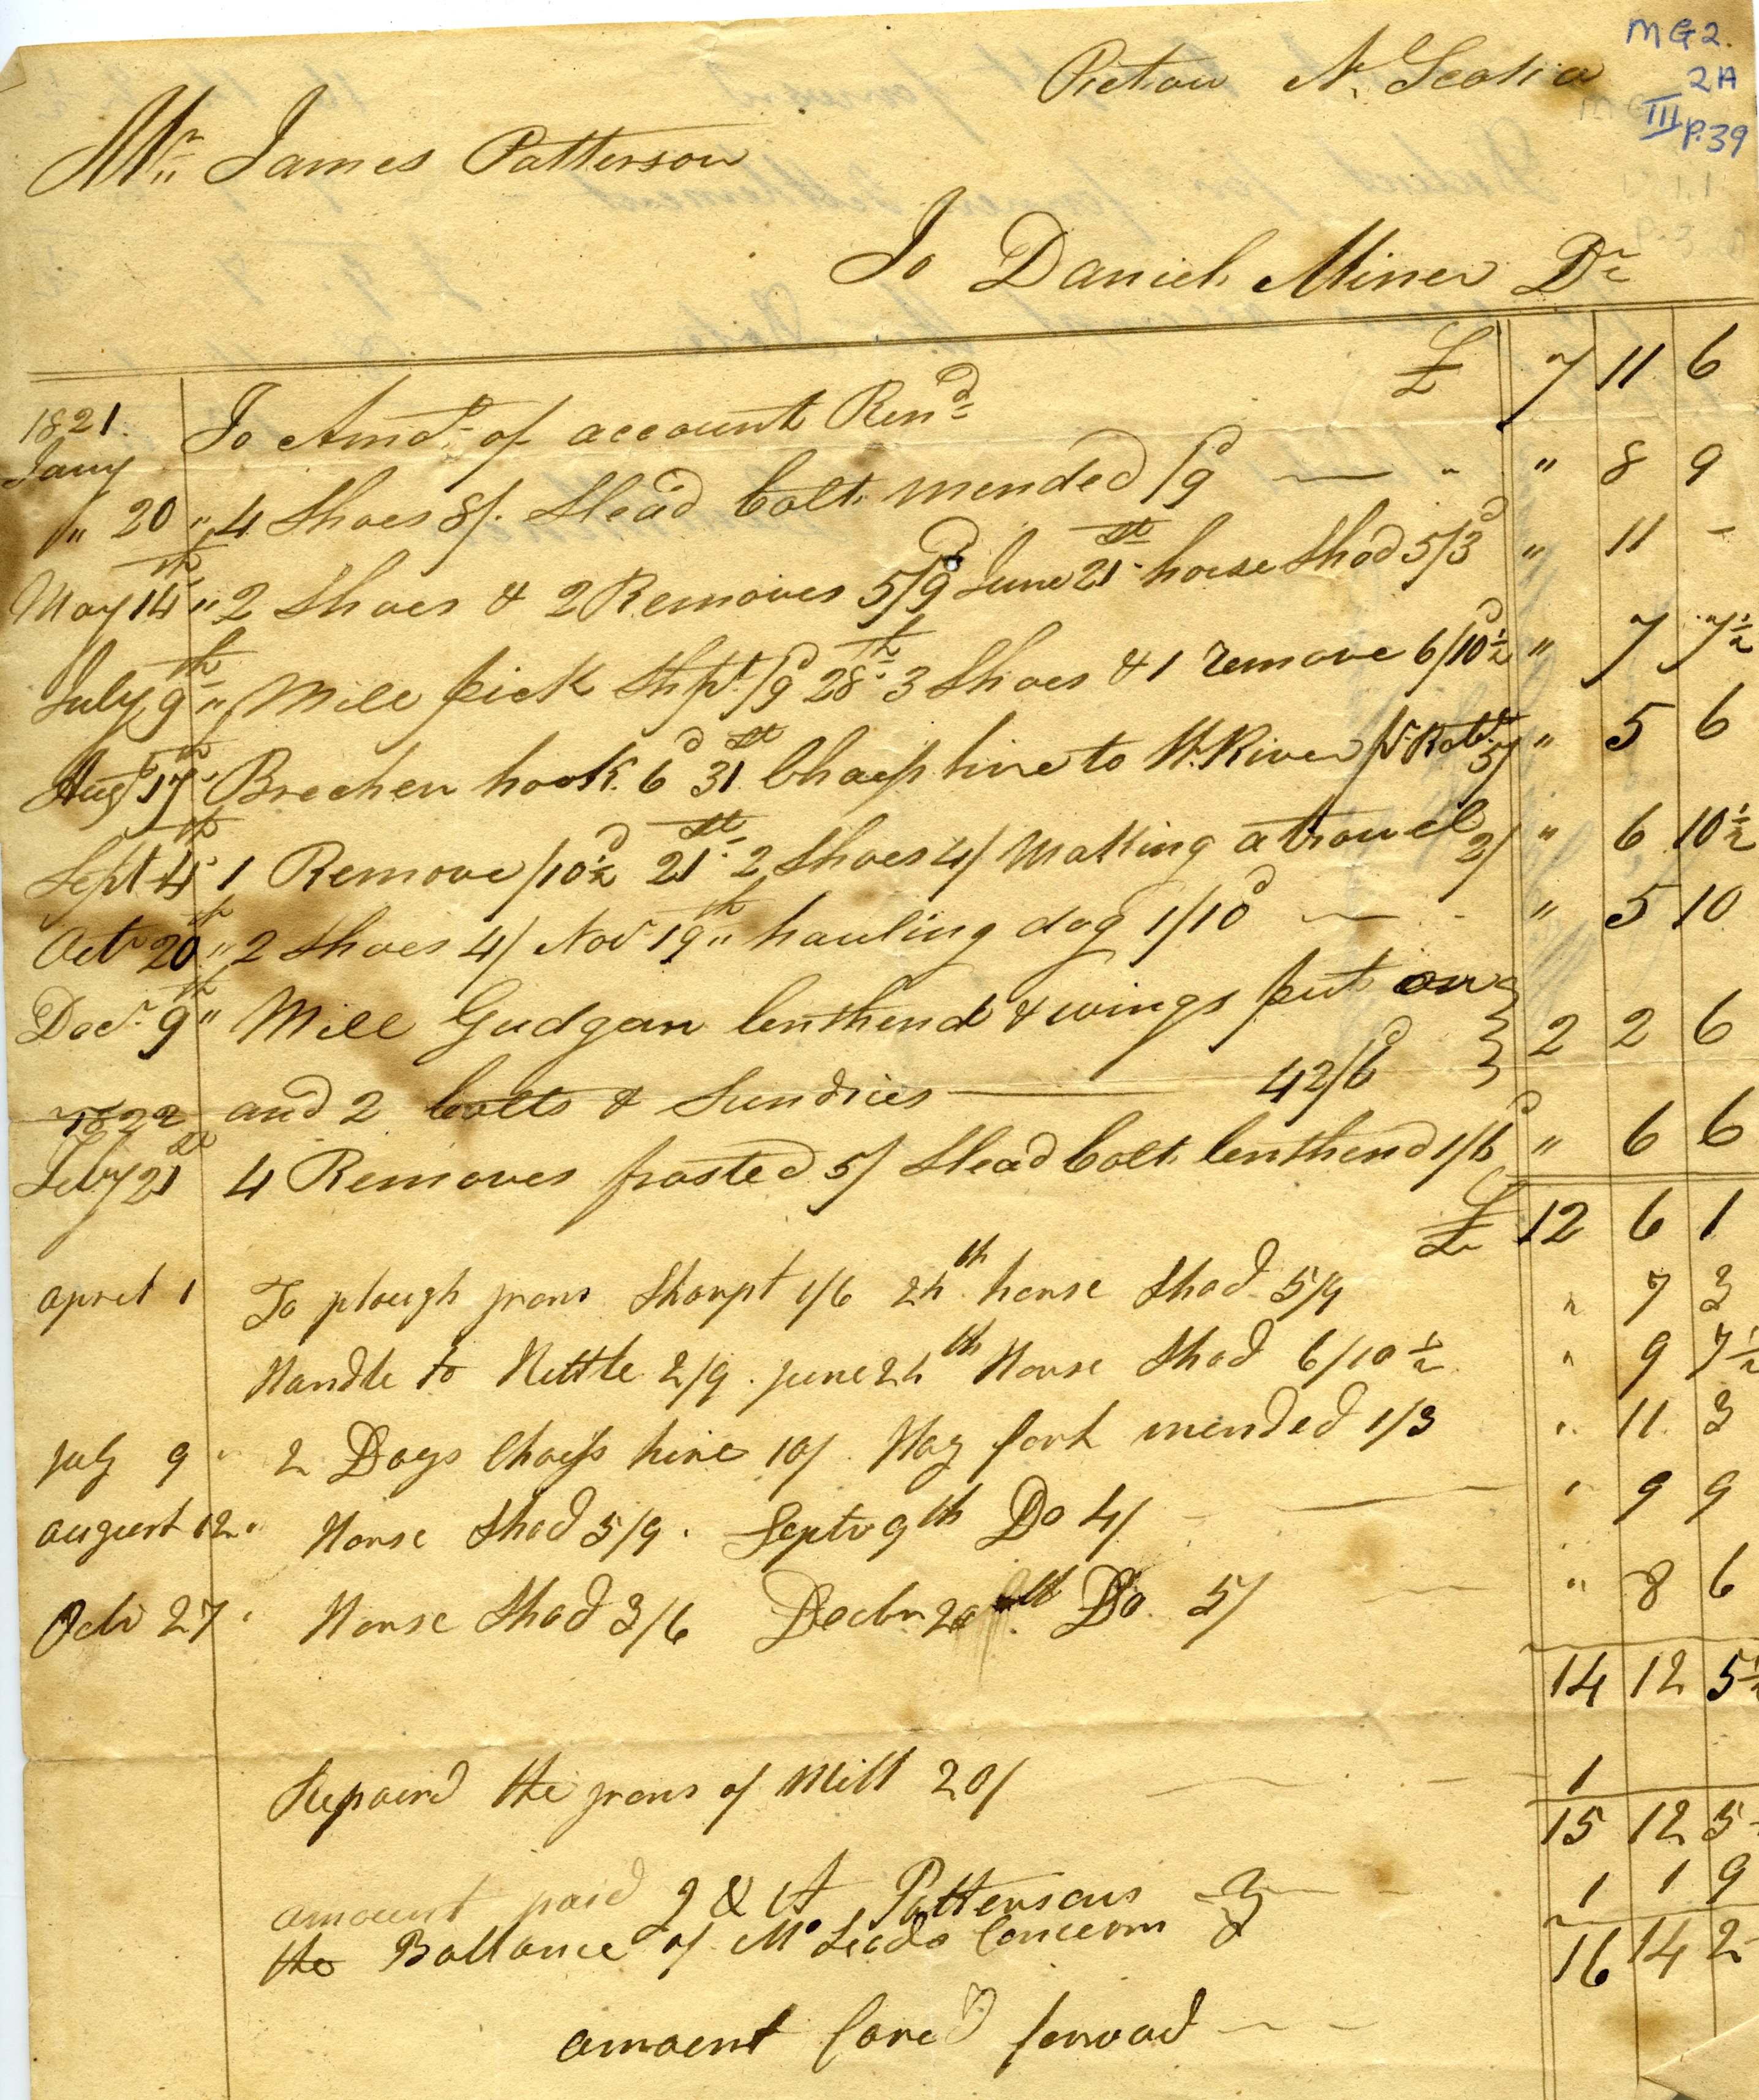 MG2.
2A
III
p.39
Pictou N. Scotia
Mr. James Patterson
To Daniel Miner Dr
£ 7 11 6
1821.
Jany To Amt. of account Rend
" 20 " 4 Shoes 8/. Slead bolt mended /9d " 8 9
May 14th " 2 Shoes & 2 Removes 5/9d June 21st horse Shod 5/3d " 11 -
July 9th " Mill pick Shpt. /9d 28th 3 Shoes & 1 remove 6/10½d " 7 7½
Augt 17th Brechen hook 6d 31st Chaise hire to W. River 5/ " 5 6
Sept 4th 1 Remove /10½d 21st 2 Shoes 4/ Making a trowel 2/ " 6 10½
Octr 20th " 2 Shoes 4/ Novr 19th " hauling dog 1/10d " 5 10
Decr. 9th " Mill Gudgan lenthend & wings put on
and 2 bolts & Sundries 42/6d 2 2 6
1822
Feby 21st 4 Removes frosted 5/ Slead bolt lenthend 1/6d " 6 6
£ 12 6 1
april 1 To plough jrons Sharpt 1/6 24th horse Shod 5/9 " 7 3
Handle to Kettle 2/9. june 24th Horse Shod 6/10½ " 9 7½
july 9 " 2 Days Chaise hire 10/. Hay fork mended 1/3 " 11 3
august 12 " Horse Shod 5/9. Septr 9th Do 4/ " 9 9
Octr 27 " Horse Shod 3/6 Decbr 20th Do. 5/ " 8 6
14 12 5½
Repaird the jrons of Mill 20/ 1
15 12 5
amount paid J & A Pattersons
the Ballance of McLeods Concern 1 1 9
16 14 2
amoent Cared forwad